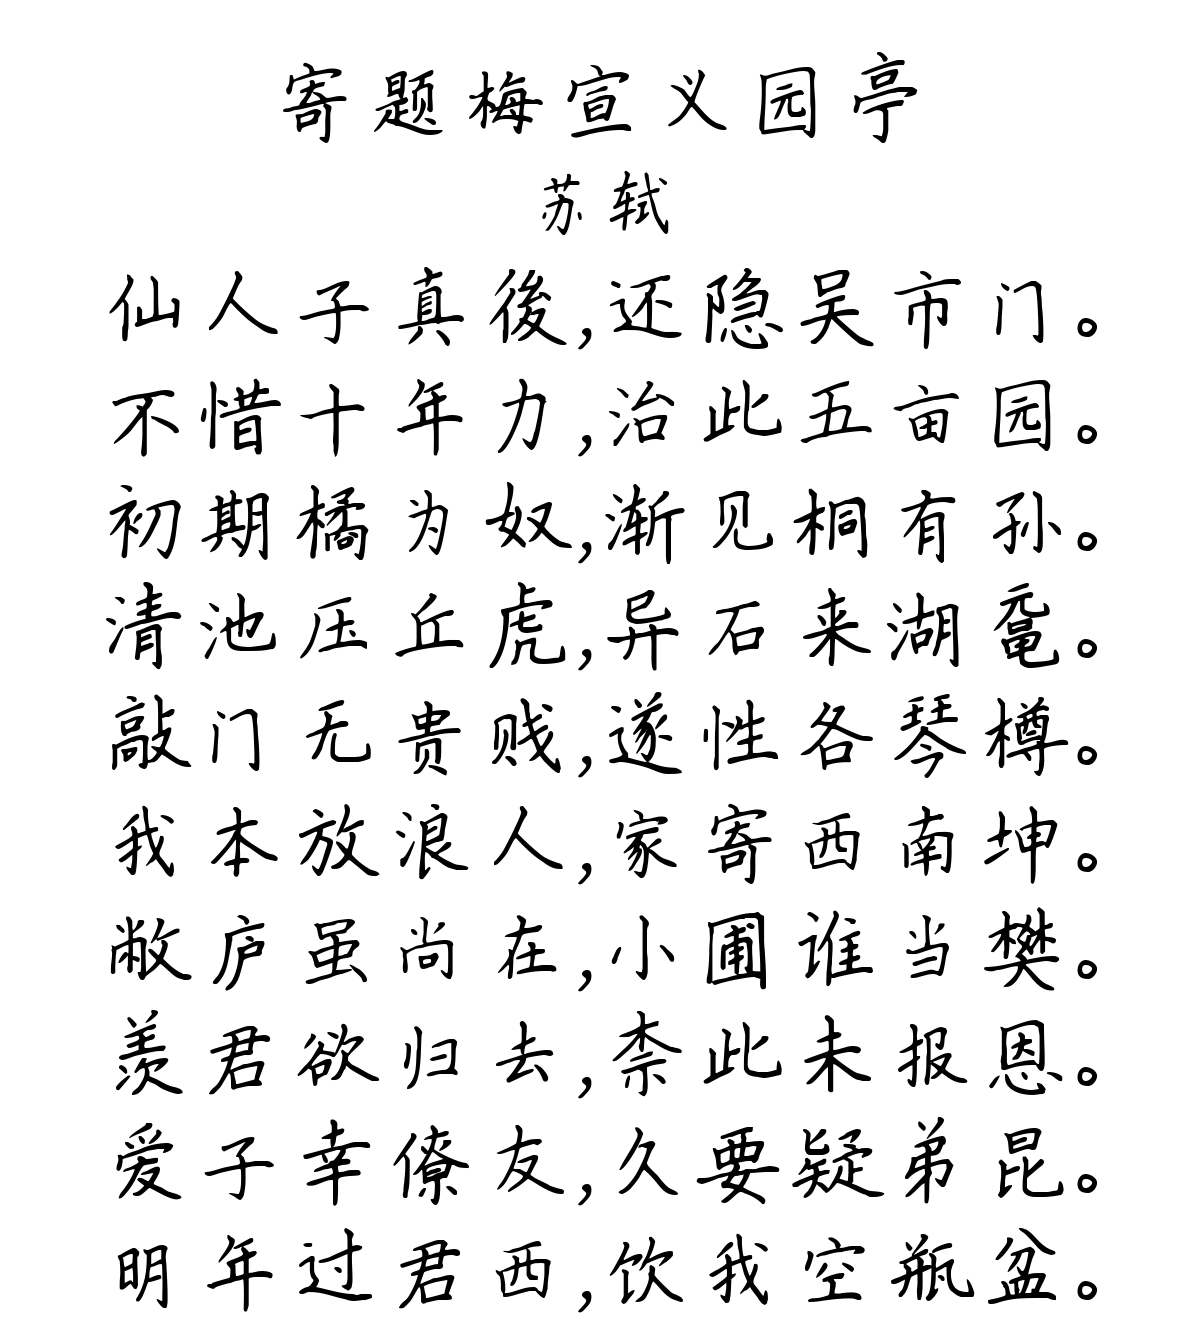 寄题梅宣义园亭
苏轼
仙人子真後,还隐吴市门。
不惜十年力,治此五亩园。
初期橘为奴,渐见桐有孙。
清池压丘虎,异石来湖鼋。
敲门无贵贱,遂性各琴樽。
我本放浪人,家寄西南坤。
敝庐虽尚在,小圃谁当樊。
羡君欲归去,柰此未报恩。
爱子幸僚友,久要疑弟昆。
明年过君西,饮我空瓶盆。